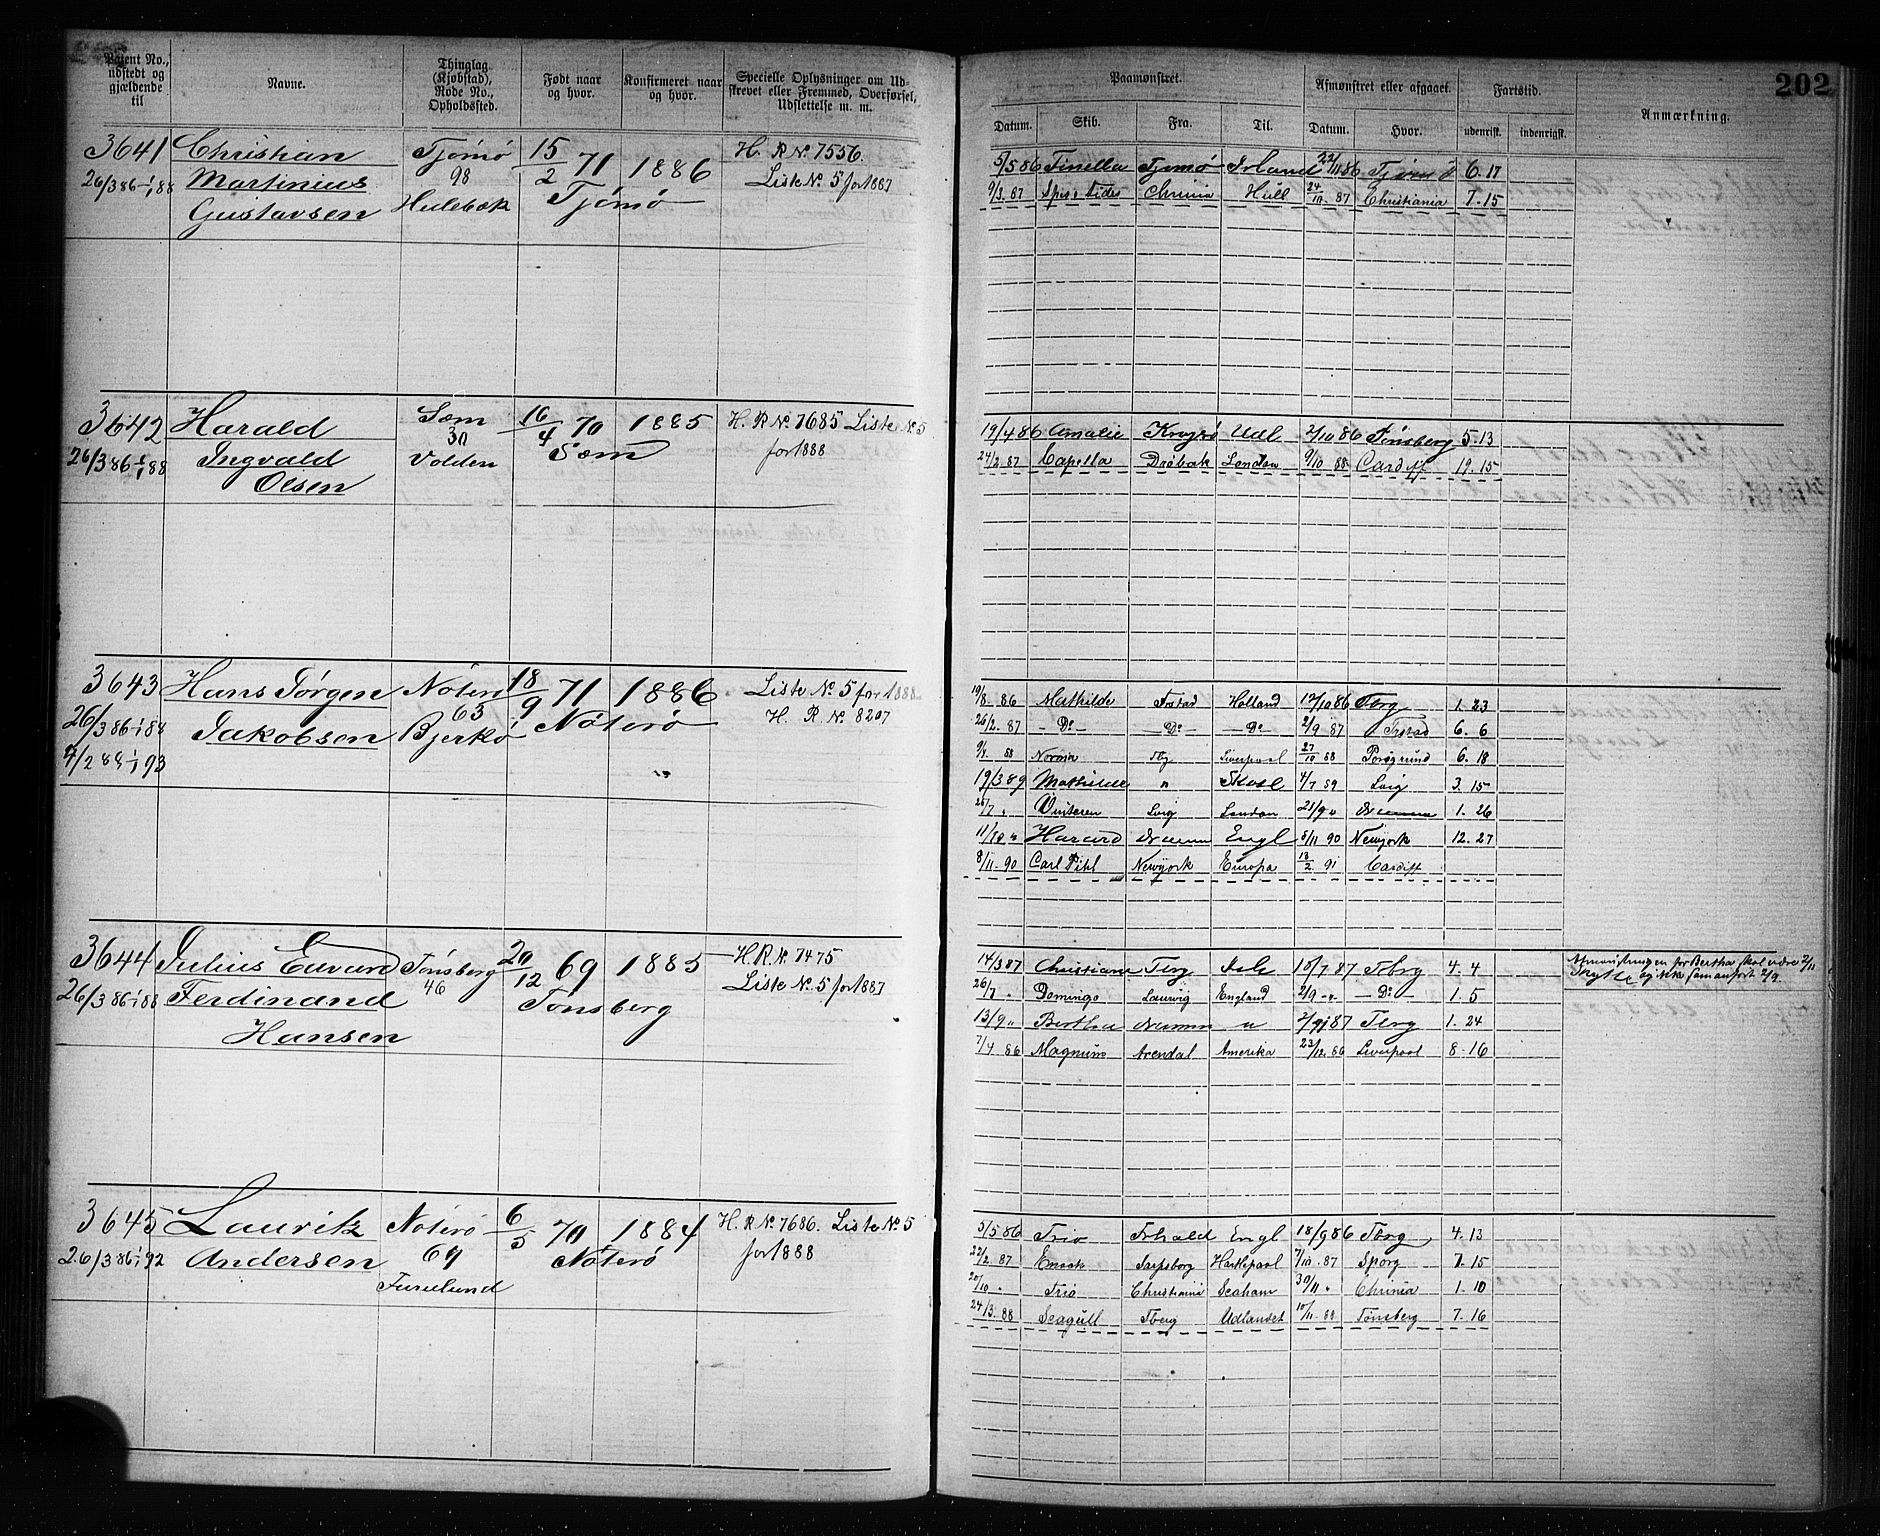 202
Patent No., udstedt og gjældende til
Navne.
Thinglag (Kjøbstad), Rode No., Opholdssted.
Født naar og hvor.
Konfirmeret naar og hvor.
Specielle Oplysninger om Udskrevet eller Fremmed, Overførsel, Udslettelse m. m.
Paamønstret.
Afmønstret eller afgaaet.
Fartstid.
Anmærkning.
Datum. Skib. Fra. Til. Datum. Hvor. udenrigst. indenrigst.
3641 Christian Tjømø 15/2 71 1886 H. R No. 7556.
26/3 86 1/1 88 Martinius 98 Tjømø Liste No. 5 for 1887
Gustavsen Hulebæk
5/5 86 Tjømø Irland 22/11 86 Tjømø 6.17
9/3.87 Chrinia Hull 24/10.87 Christiania 7.15
3642 Harald Sæm 16/4 70 1885 H. R No. 7685 Liste No. 5
26/3 86 1/1 88 Ingvald 30 Sæm for 1888
Olsen Volden
19/4 86 Amalie Udl 2/10 86 Tønsberg 5.13
24/2.87 Capella Drøbak London 9/10 88 Cardiff 19.15
3643 Hans Jørgen Nøterø 18/9 71 1886 Liste No. 5 for 1888
26/3 86 1/1 88 Jakobsen 63 Nøterø H. R. No. 8207
4/2 88 1/1 93 Bjerkø
19/8. 86 Mathilde Frstad Holland 12/10 86 Tbrg 1.23
26/2.87 - Do - - Do - - Do 2/9 87 Frstad 6.6
9/4 88 Norma Tbg Liverpool 27/10 88 Porsgrund 6.18
19/3 89 Mathilde " 4/7 89 Lvig 3.15
25/7 " Lvig London 21/9 " Drammn 1.26
11/10 " Drammn Engl 8/11 90 Newyork 12.27
8/11.90 Carl Pihl Newyork Europa 13/2 91 Cardiff
3644 Julius Edvard Tønsberg 20/12 69 1885 H. R No. 7475
26/3 86 1/1 88 Ferdinand 46 Tønsberg Liste No. 5 for 1887
Hansen
14/3 87 Christiane Tbrg 18/7 87 Tbrg 4.4 Afmønstringen for Bertha skal være 2/11
26/7 " Domingo Laurvig England 2/9 " - Do - 1.5 og ikke som anført 2/9.
13/9 " Bertha Drammn " 2/9 87 Tbrg 1.24
7/4 86 Magnum Arendal Amerika 23/12.86 Liverpool 8.16
3645 Lauritz Nøterø 6/5 70 1884 H. R No. 7686. Liste No. 5
26/3 86 1/1 92 Andersen 69 Nøterø for 1888
Furulund
5/5 86 Trio Frhald Engl 18/9 86 Tbrg 4.13
22/2.87 Sarpsborg Hartlepool 7/10.87 Spbrg 7.15
20/10 " Trio Christiania Seaham 30/11 " Chrinia 1.10
24/3.88 Seagull Tberg Udlandet 10/11.88 Tønsberg 7.16